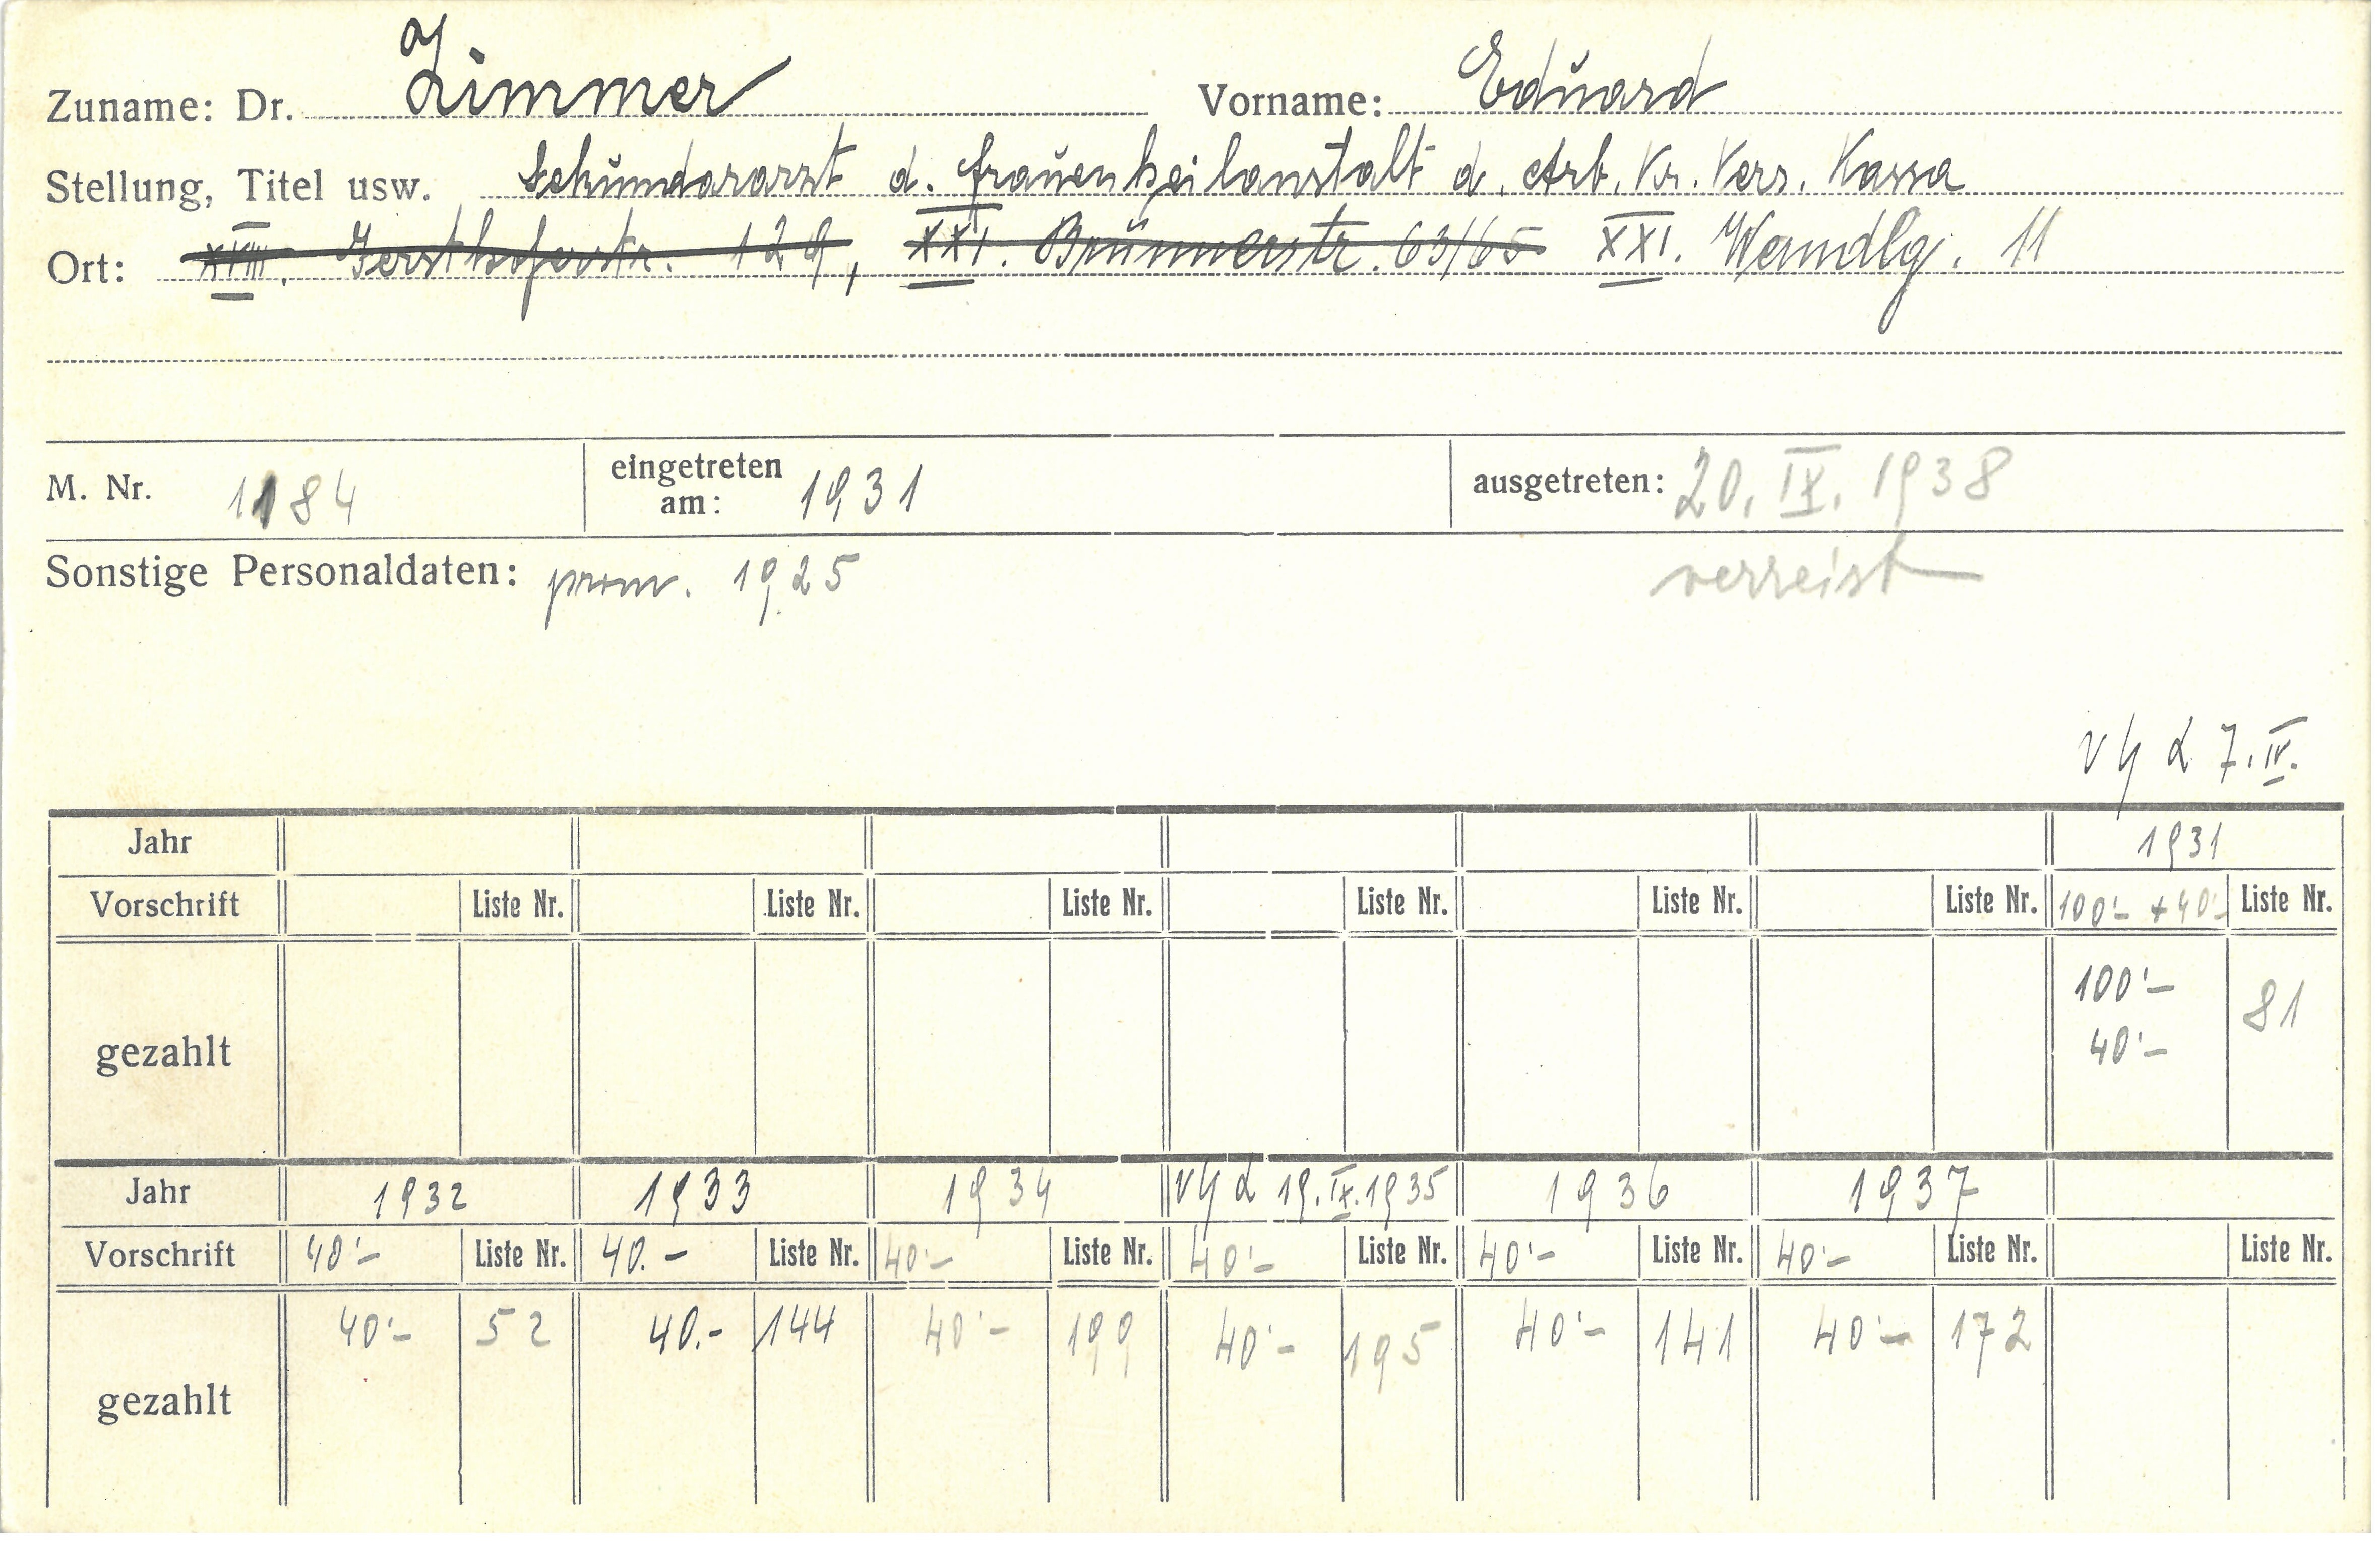 Zuname: Dr. Zimmer Vorname: Eduard
Stellung, Titel usw. Sekundararzt d. Frauenheilanstalt d. Arb. Kr. Vers. Kassa
Ort: XVIII. Gersthoferstr. 129, XXI. Brünnerstr. 63/65 XXI. Wenndlg. 11
M. Nr. 1184 eingetreten am: 1931 ausgetreten: 20. IX. 1938
Sonstige Personaldaten: prom. 1925 verreist
7. IV.
Jahr 1931
Vorschrift Liste Nr. Liste Nr. Liste Nr. Liste Nr. Liste Nr. Liste Nr. 100'- + 40'- Liste Nr.
gezahlt 100'- 81
40'-
Jahr 1932 1933 1934 19. IX. 1935 1936 1937
Vorschrift 40'- Liste Nr. 40.- Liste Nr. 40'- Liste Nr. 40'- Liste Nr. 40'- Liste Nr. 40'- Liste Nr. Liste Nr.
gezahlt 40'- 52 40.- 144 40'- 199 40'- 195 40'- 141 40'- 172